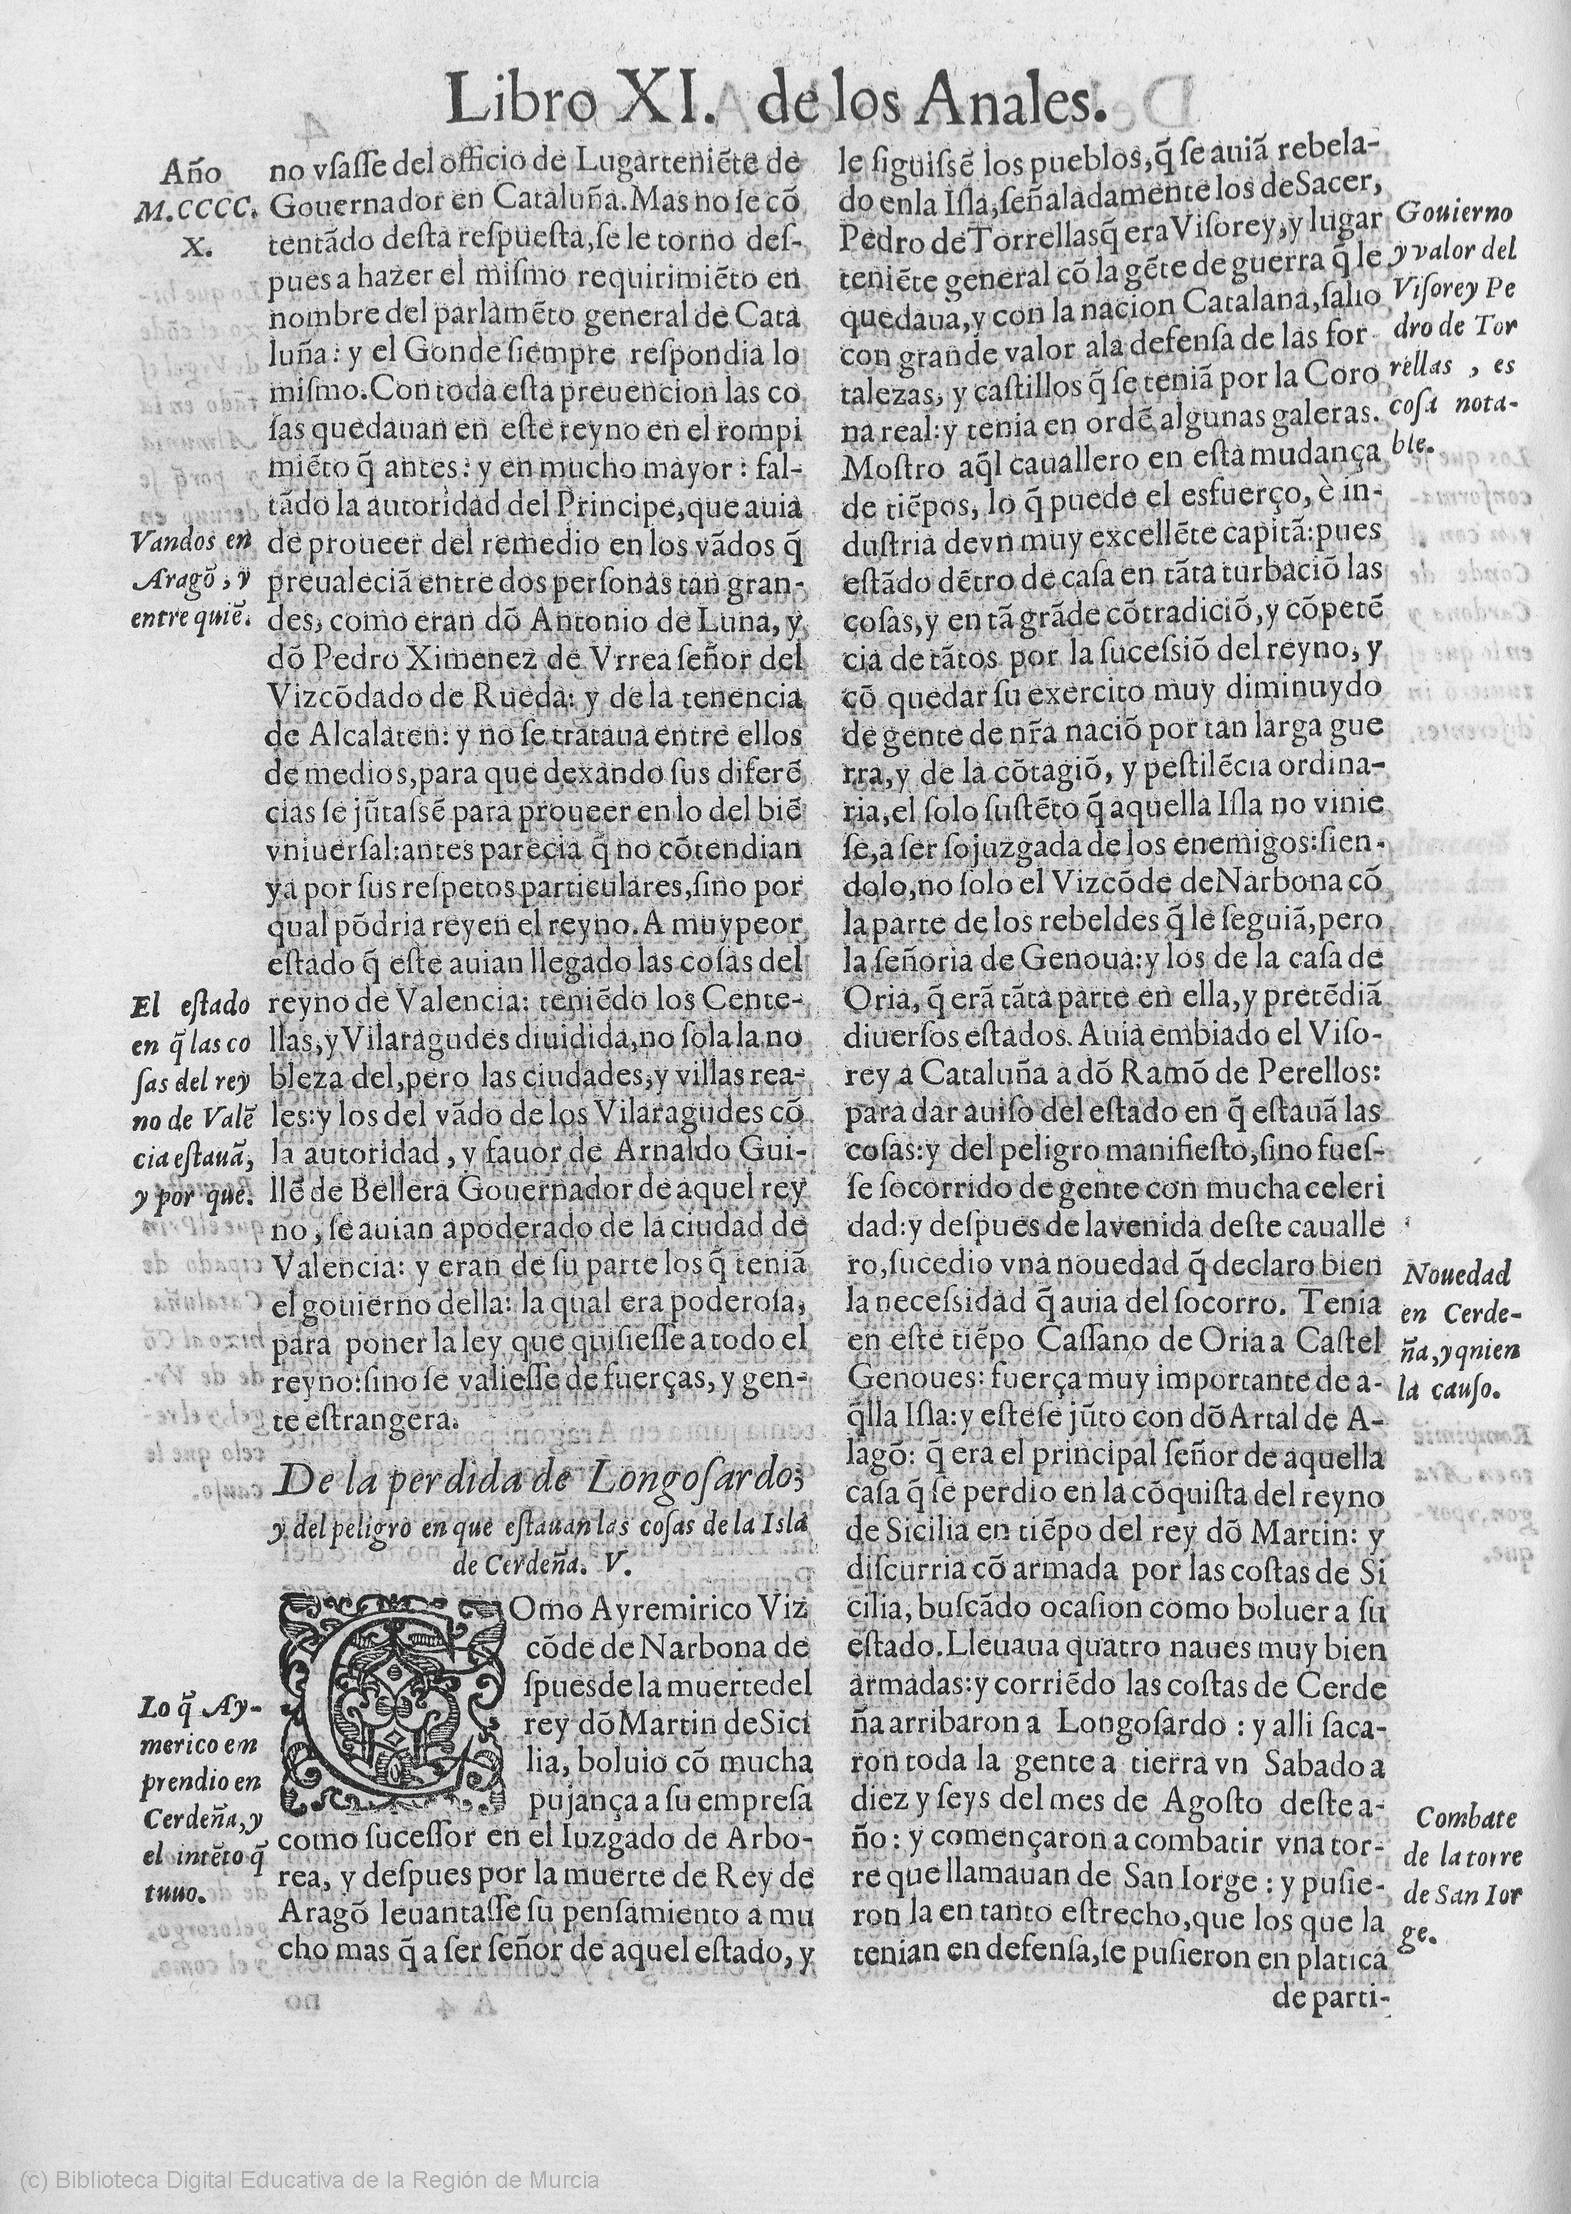 Libro XI. de los Anales.
Año
M.CCCC.
X.
no vſaſſe del officio de Lugarteniẽte de
Gouernador en Cataluña. Mas no ſe cõ
tentãdo deſta reſpueſta, ſe le torno deſ-
pues a hazer el miſmo requirimiẽto en
nombre del parlamẽto general de Cata
luña: y el Gonde ſiempre reſpondia lo
miſmo. Con toda eſta preuencion las co
ſas quedauan en eſte reyno en el rompi
miẽto q̃ antes: y en mucho mayor: fal-
tãdo la autoridad del Principe, que auia
de proueer del remedio en los vãdos q̃
preualeciã entre dos perſonas tan gran-
des, como eran dõ Antonio de Luna, y
dõ Pedro Ximenez de Vrrea ſeñor del
Vizcõdado de Rueda: y de la tenencia
de Alcalaten: y no ſe trãtaua entre ellos
de medios, para que dexando ſus diferẽ
cias ſe jũtaſsẽ para proueer en lo del biẽ
vniuerſal: antes parecia q̃ no cõtendian
ya por ſus reſpetos particulares, ſino por
qual põdria rey en el reyno. A muy peor
eſtado q̃ eſte auian llegado las coſas del
reyno de Valencia: teniẽdo los Cente-
llas, y Vilaragudes diuidida, no ſola la no
bleza del, pero las ciudades, y villas rea-
les: y los del vãdo de los Vilaragudes cõ
la autoridad, y fauor de Arnaldo Gui-
llẽ de Bellera Gouernador de aquel rey
no, ſe auian apoderado de la ciudad de
Valencia: y eran de ſu parte los q̃ teniã
el gouierno della: la qual era poderoſa,
para poner la ley que quiſieſſe a todo el
reyno: ſino ſe valieſſe de fuerças, y gen-
te eſtrangera.
Vandos en
Aragõ, y
entre quiẽ.
El eſtado
en q̃ las co
ſas del rey
no de Valẽ
cia eſtauã,
y por que.
De la perdida de Longoſardo;
y del peligro en que eſtauan las coſas de la Isla
de Cerdeña. V.
COmo Ayremirico Viz
cõde de Narbona de
ſpues de la muerte del
rey dõ Martin de Sici
lia, boluio cõ mucha
pujança a ſu empreſa
como ſuceſſor en el Iuzgado de Arbo-
rea, y deſpues por la muerte de Rey de
Aragõ leuantaſſe ſu penſamiento a mu
cho mas q̃ a ſer ſeñor de aquel eſtado, y
Lo q̃ Ay-
merico em
prendio en
Cerdeña, y
el intẽto q̃
tuuo.
le ſiguiſsẽ los pueblos, q̃ ſe auiã rebela-
do en la Iſla, ſeñaladamente los de Sacer,
Pedro de Torrellas q̃ era Viſorey, y lugar
teniẽte general cõ la gẽte de guerra q̃ le
quedaua, y con la nacion Catalana, ſalio
con grande valor a la defenſa de las for
talezas, y caſtillos q̃ ſe teniã por la Coro
na real: y tenia en ordẽ algunas galeras.
Moſtro aq̃l cauallero en eſta mudança
de tiẽpos, lo q̃ puede el esfuerço, è in-
duſtria de vn muy excellẽte capitã: pues
eſtãdo dẽtro de caſa en tãta turbaciõ las
coſas, y en tã grãde cõtradiciõ, y cõpetẽ
cia de tãtos por la ſuceſsiõ del reyno, y
cõ quedar ſu exercito muy diminuydo
de gente de nr̃a naciõ por tan larga gue
rra, y de la cõtagiõ, y peſtilẽcia ordina-
ria, el ſolo ſuſtẽto q̃ aquella Iſla no vinie
ſe, a ſer ſojuzgada de los enemigos: ſien-
dolo, no ſolo el Vizcõde de Narbona cõ
la parte de los rebeldes q̃ le ſeguiã, pero
la ſeñoria de Genoua: y los de la caſa de
Oria, q̃ erã tãta parte en ella, y pretẽdiã
diuerſos eſtados. Auia embiado el Viſo-
rey a Cataluña a dõ Ramõ de Perellos:
para dar auiſo del eſtado en q̃ eſtauã las
coſas: y del peligro manifieſto, ſino fueſ-
ſe ſocorrido de gente con mucha celeri
dad: y deſpues de la venida deſte caualle
ro, ſucedio vna nouedad q̃ declaro bien
la neceſsidad q̃ auia del ſocorro. Tenia
en eſte tiẽpo Caſſano de Oria a Caſtel
Genoues: fuerça muy importante de a-
q̃lla Iſla: y eſte ſe jũto con dõ Artal de A-
lagõ: q̃ era el principal ſeñor de aquella
caſa q̃ ſe perdio en la cõquiſta del reyno
de Sicilia en tiẽpo del rey dõ Martin: y
diſcurria cõ armada por las coſtas de Si
cilia, buſcãdo ocaſion como boluer a ſu
eſtado. Lleuaua quatro naues muy bien
armadas: y corriẽdo las coſtas de Cerde
ña arribaron a Longoſardo: y alli ſaca-
ron toda la gente a tierra vn Sabado a
diez y ſeys del mes de Agoſto deſte a-
ño: y començaron a combatir vna tor-
re que llamauan de San Iorge: y puſie-
ron la en tanto eſtrecho, que los que la
tenian en defenſa, ſe puſieron en platica
de parti-
Gouierno
y valor del
Viſorey Pe
dro de Tor
rellas, es
coſa nota-
ble.
Nouedad
en Cerde-
ña, y qnien
la cauſo.
Combate
de la torre
de San Ior
ge.
(c) Biblioteca Digital Educativa de la Región de Murcia